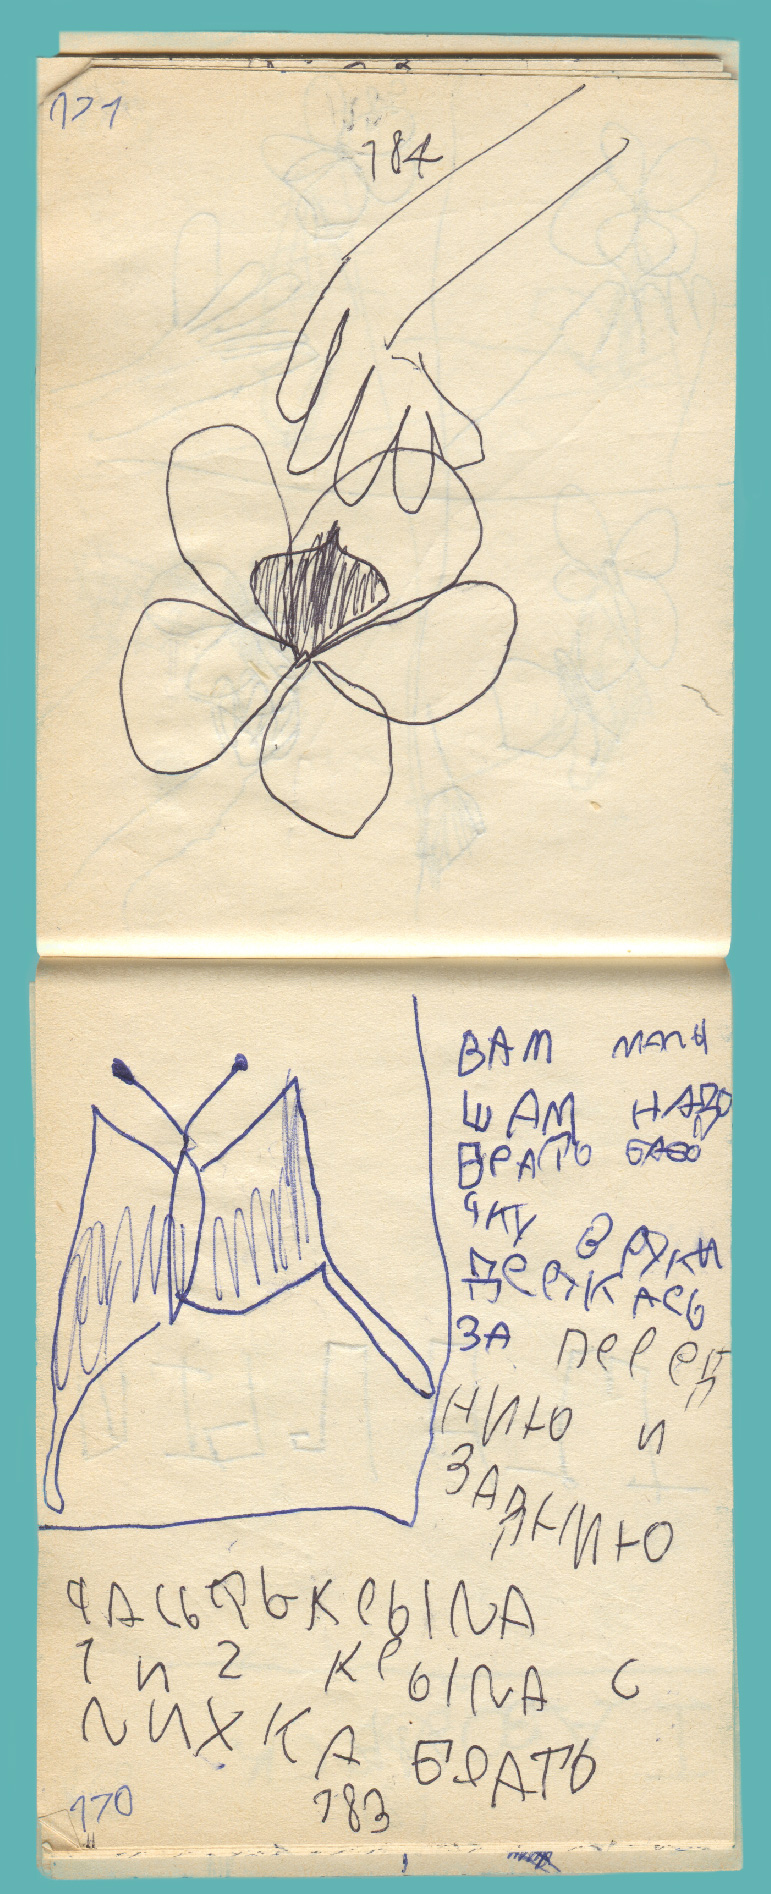 171
184
ВАМ МАЛЫ
ШАМ НАДО
БРАТЬ БАБО
ЧКУ В РУКИ
ДЕРЖАСЬ
ЗА ПЕРЕД
НИЮ И
ЗАДНИЮ
ЧАСЬТЬ КРЫЛА
1 И 2 КРЫЛА С
ЛИХКА БРАТЬ
170 183